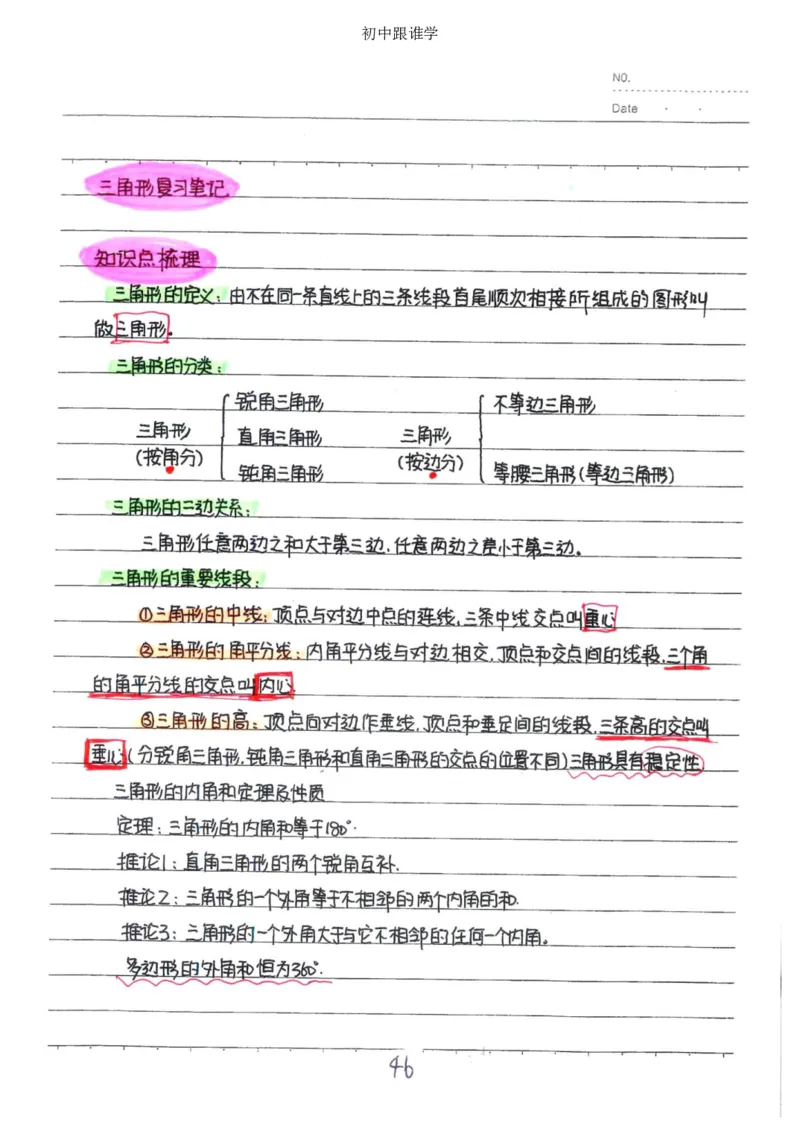 初中跟谁学
NO.
Date
三角形复习笔记
知识点梳理
三角形的定义：由不在同一条直线上的三条线段首尾顺次相接所组成的图形叫
做三角形。
三角形的分类：
锐角三角形 不等边三角形
三角形 直角三角形 三角形
(按角分) (按边分)
钝角三角形 等腰三角形(等边三角形)
三角形的三边关系：
三角形任意两边之和大于第三边,任意两边之差小于第三边。
三角形的重要线段：
①三角形的中线：顶点与对边中点的连线,三条中线交点叫重心
②三角形的角平分线：内角平分线与对边相交,顶点和交点间的线段,三个角
的角平分线的交点叫内心.
③三角形的高：顶点向对边作垂线,顶点和垂足间的线段,三条高的交点叫
垂心(分锐角三角形,钝角三角形和直角三角形的交点的位置不同)三角形具有稳定性.
三角形的内角和定理及性质
定理：三角形的内角和等于180°.
推论1：直角三角形的两个锐角互补.
推论2：三角形的一个外角等于不相邻的两个内角的和.
推论3：三角形的一个外角大于与它不相邻的任何一个内角。
多边形的外角和恒为360°.
46